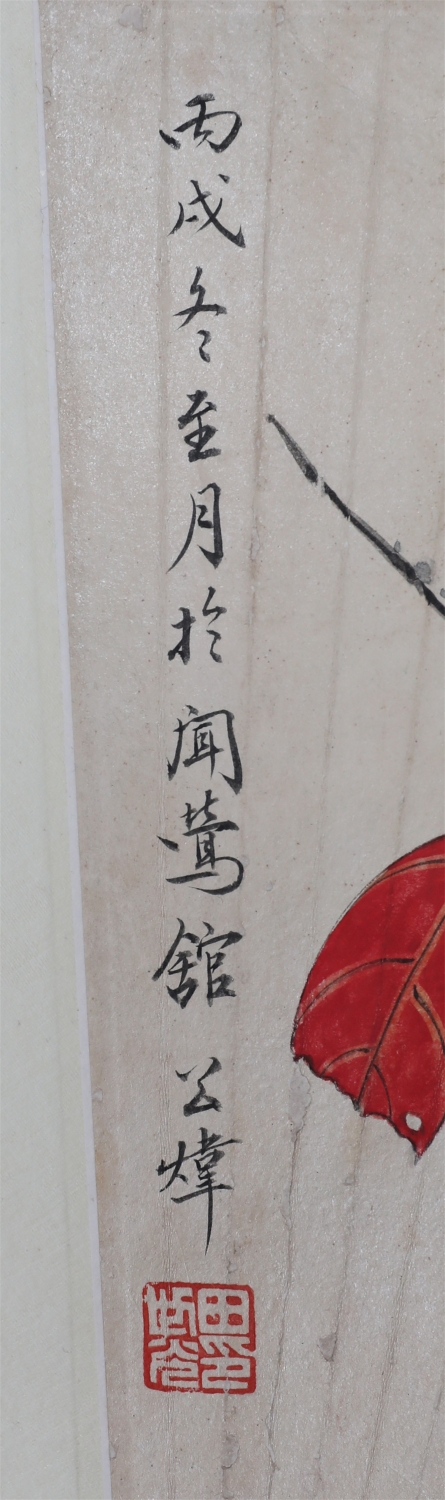 丙戌冬至月於聞鶯館 公煒